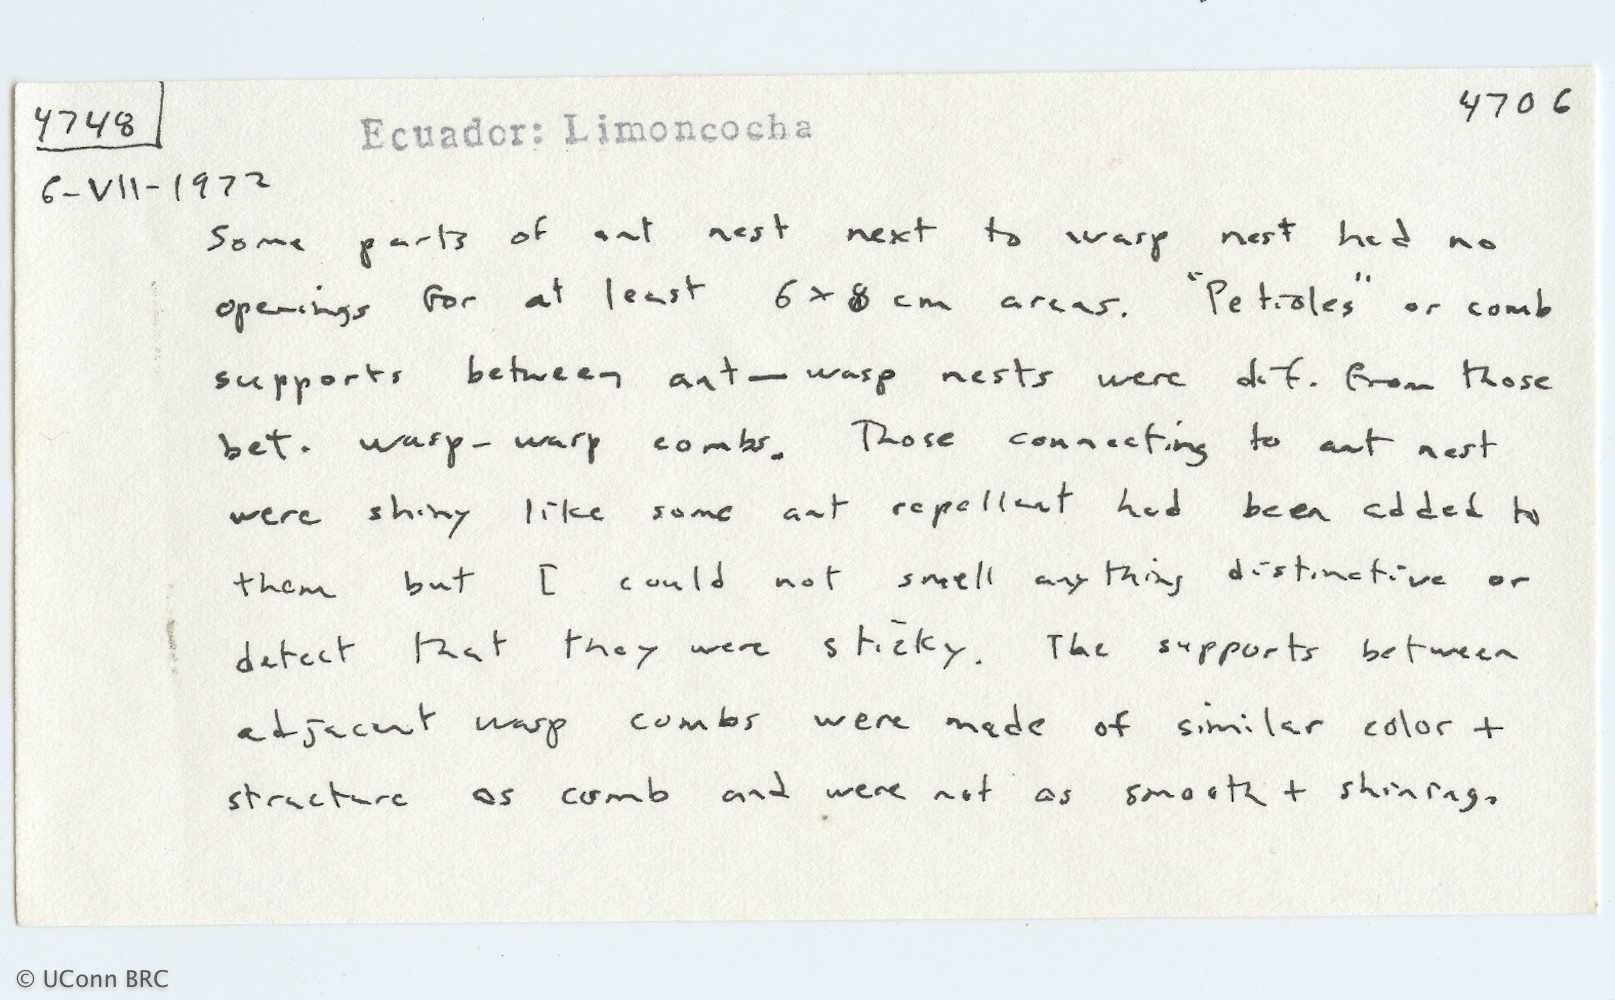 4748
Ecuador: Limoncocha
4706
6-VII-1972
Some parts of ant nest next to wasp nest had no
openings for at least 6 x 8 cm areas. "Petioles" or comb
supports between ant-wasp nests were dif. from those
bet. wasp-wasp combs. Those connecting to ant nest
were shiny like some ant repellent had been added to
them but I could not smell anything distinctive or
detect that they were sticky. The supports between
adjacent wasp combs were made of similar color +
structure as comb and were not as smooth + shining.
© UConn BRC